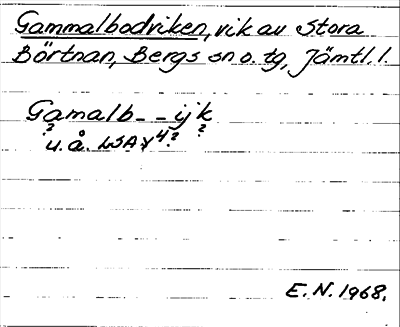 Gammalbodviken, vik av Stora
Börtnan, Bergs sn o. tg, Jämtl. l.
Gamalb- - ijk
? ?
u. å. LSA Y4?
E. N. 1968.